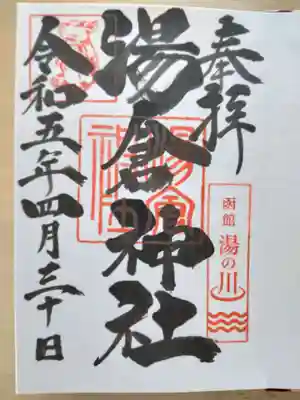 奉拝
函館 湯の川
湯倉神社
令和五年四月三十日